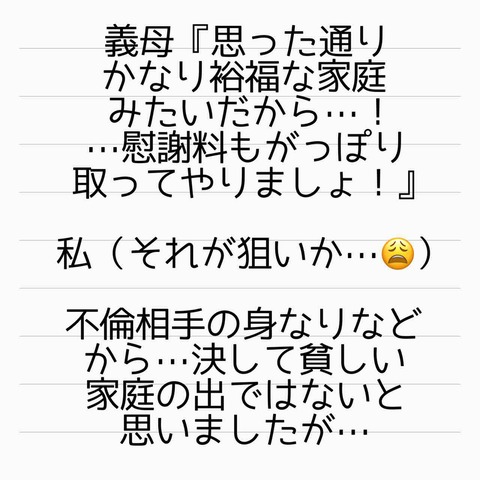 義母『思った通り
かなり裕福な家庭
みたいだから…！
…慰謝料もがっぽり
取ってやりましょ！』
私（それが狙いか…😩）
不倫相手の身なりなど
から…決して貧しい
家庭の出ではないと
思いましたが…